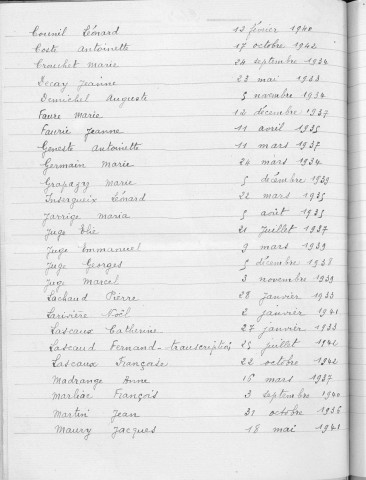 Couneil Léonard 12 février 1940
Coste Antoinette 17 octobre 1942
Crouchet Marie 24 septembre 1934
Decay Jeanne 23 mai 1933
Demichel Auguste 5 novembre 1934
Faure Marie 12 décembre 1937
Faurie Jeanne 11 avril 1935
Geneste Antoinette 11 mars 1937
Germain Marie 24 mars 1934
Grapazy Marie 5 décembre 1939
Insergueix Léonard 22 mars 1935
Jarrige Maria 5 août 1935
Juge Elie 21 juillet 1937
Juge Emmanuel 9 mars 1939
Juge Georges 5 décembre 1938
Juge Marcel 3 novembre 1939
Lachaud Pierre 28 janvier 1933
Larivière Noël 2 janvier 1941
Lascaux Catherine 27 janvier 1933
Lascaud Fernand - transcription 25 juillet 1942
Lascaux Françoise 22 octobre 1942
Madrange Anne 16 mars 1937
Marliac François 3 septembre 1940
Martin Jean 31 octobre 1936
Maury Jacques 18 mai 1941